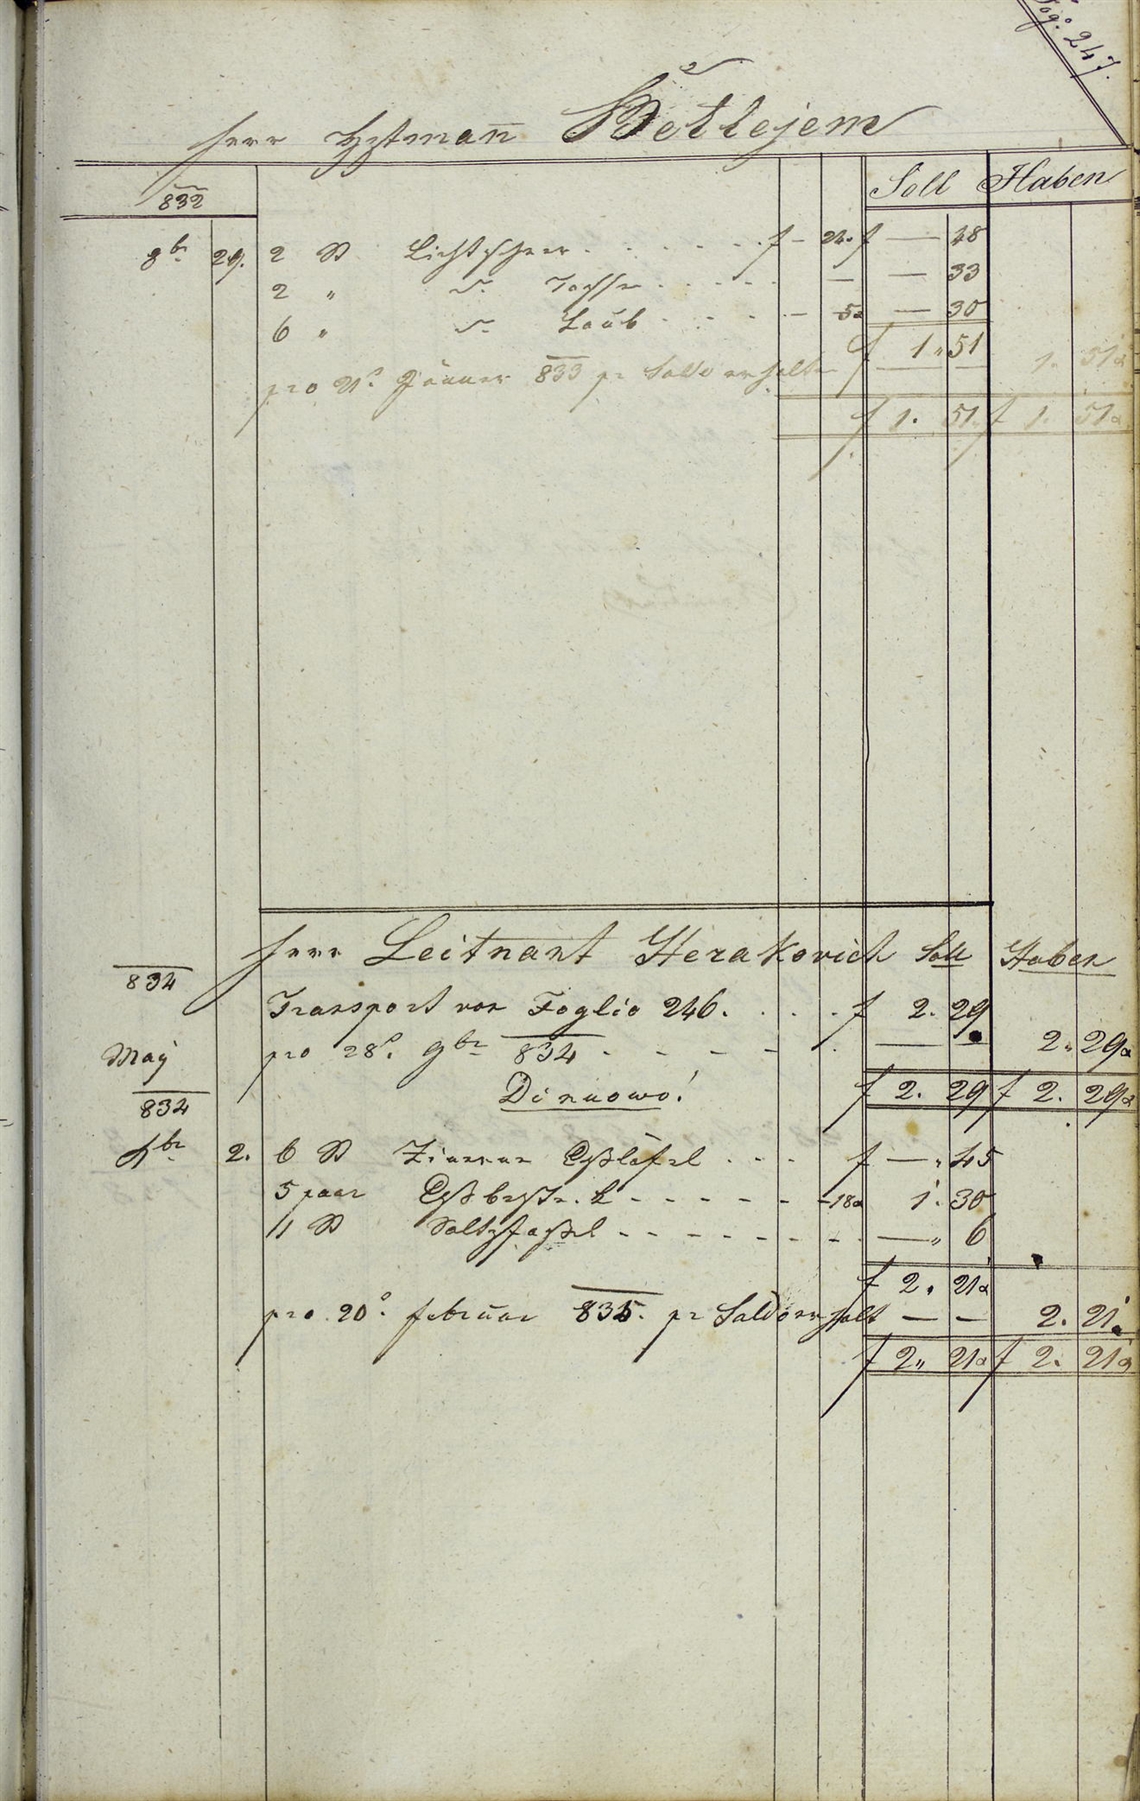 Fog. 247.
Herr Hptmann Betlejem
832 Soll Haben
8br 29. 2 St Lichtscheer . . . . . . f — 24. f — 48
2 " d. Tasse . . . . . — — 33
6 " d. Laub . . . . — 5a — 30
f 1 " 51 1. 51a
pro 21o Jänner 833 pr Saldo erhalten
f 1. 51. f 1. 51a
Herr Leitnant Herakovich Soll Haben
834
Transport von Foglio 246. . . . . f 2. 29
May pro 28o. 9br 834 - - - - - 2. 29a
834 Di nuowo! f 2. 29 f 2. 29a
2. 6 St Eßlöfel - - - f — " 45
5 paar Eßbestek - - - - - - 18a 1. 30
11 St Saltzfaßel - - - - - - - — " 6
f 2. 21a
pro 20o. februar 835. pr Saldo erhalt — — 2. 21a
f 2,, 21a f 2. 21a